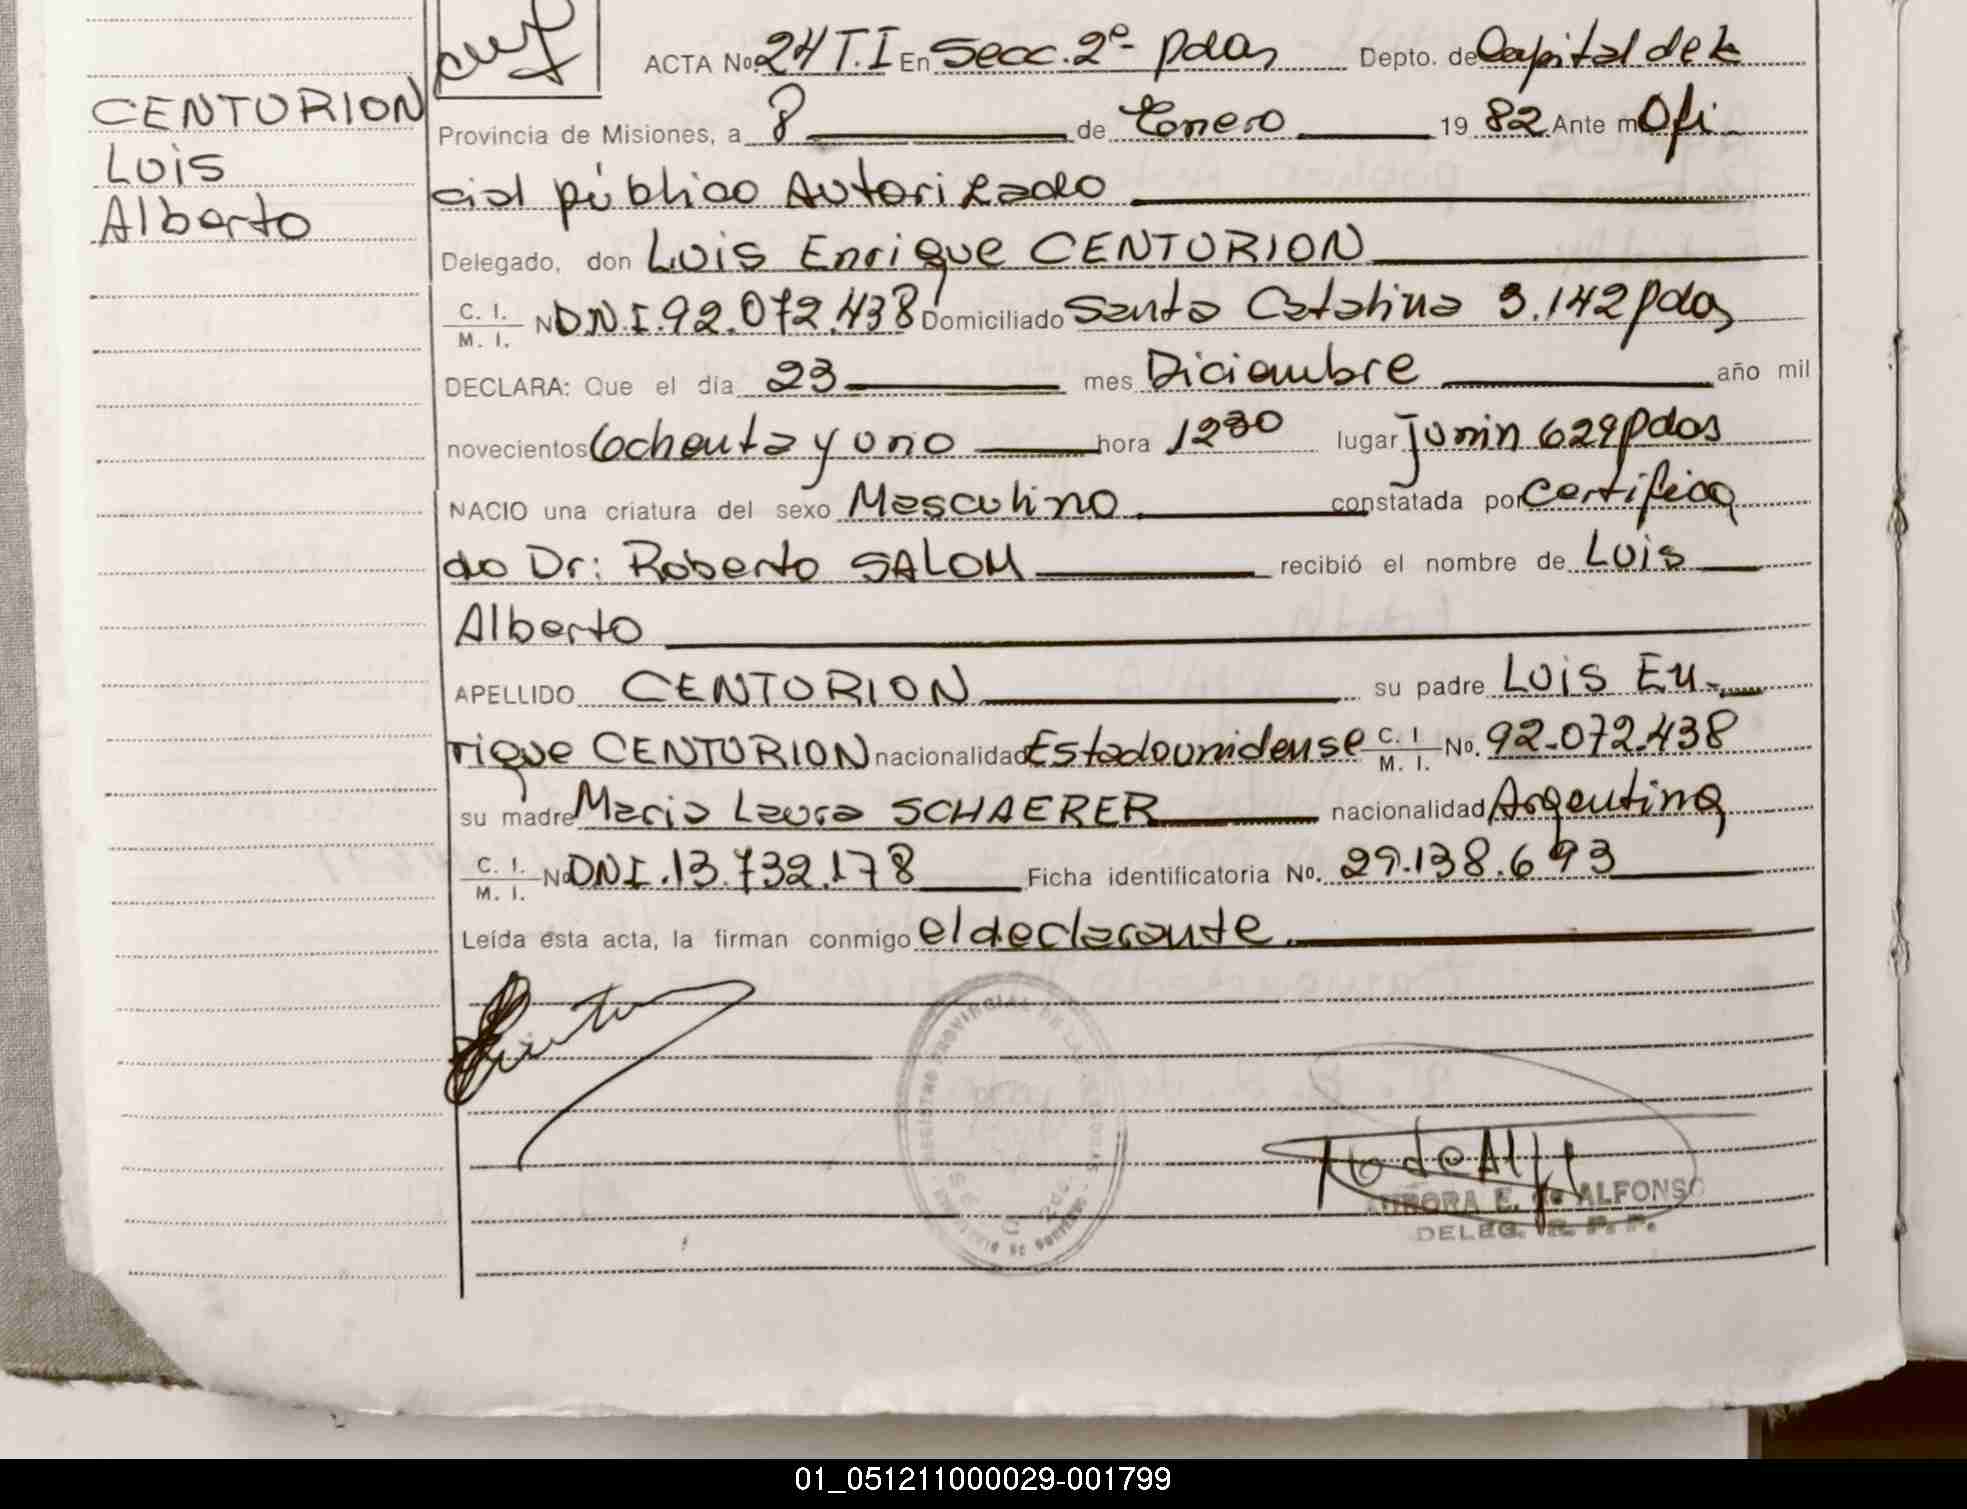 ACTA No. 24 T.I En Secc. 2º Pdas Depto. de Capital de la
CENTURION
Luis
Alberto
Provincia de Misiones, a 8 de Enero 19 82 Ante mí Ofi-
cial público Autorizado
Delegado, don Luis Enrique CENTURION
C. I.
M. I. No DNI. 92.072.438 Domiciliado Santa Catalina 3.142 Pdas
DECLARA: Que el día 23 mes Diciembre año mil
novecientos Ochenta y uno hora 1230 lugar Junin 629 Pdas
NACIO una criatura del sexo Masculino constatada por Certifica
do Dr: Roberto SALOM recibió el nombre de Luis
Alberto
APELLIDO CENTURION su padre Luis En-
rique CENTURION nacionalidad Estadounidense C. I. M. I. No. 92.072.438
su madre Maria Laura SCHAERER nacionalidad Argentina
C. I.
M. I. No DNI. 13.732.178 Ficha identificatoria No. 29.138.693
Leída esta acta, la firman conmigo el declarante.
REGISTRO PROVINCIAL DE LAS PERSONAS
AURORA E. de ALFONSO
DELEG. R. P. P.
01_051211000029-001799